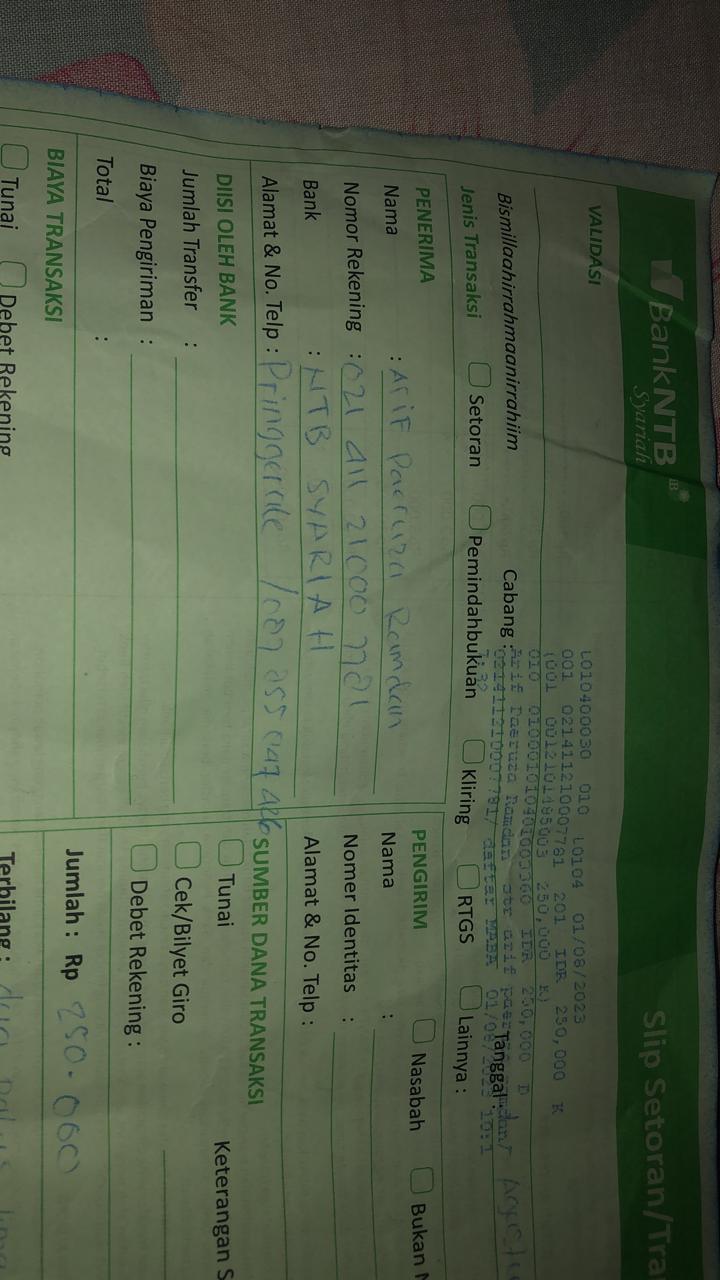 BankNTB
Syariah
Slip Setoran/Tra
VALIDASI
L010400030 010 L0104 01/08/2023
001 021411210007781 201 IDR 250,000 K
(001 0012101495003 250,000 K)
010 0100010104010003360 IDR 250,000 D
Arif Paeruza Ramdan str arif
021411210007781/ daftar MABA 01/08/2023 10:1
7:32
Bismillaahirrahmaanirrahiim
Cabang :
Tanggal :
Jenis Transaksi
Setoran
Pemindahbukuan
Kliring
RTGS
Lainnya :
PENERIMA
Nama : Arif Paeruza Ramdan
Nomor Rekening : 021 411 21000 7781
Bank : NTB SYARIAH
Alamat & No. Telp :
PENGIRIM
Nasabah
Bukan
Nama :
Nomer Identitas :
Alamat & No. Telp :
DIISI OLEH BANK
Jumlah Transfer :
Biaya Pengiriman :
Total :
SUMBER DANA TRANSAKSI
Tunai
Cek/Bilyet Giro
Debet Rekening :
Keterangan S
BIAYA TRANSAKSI
Tunai
Debet Rekening
Jumlah : Rp 250.000
Terbilang : dua